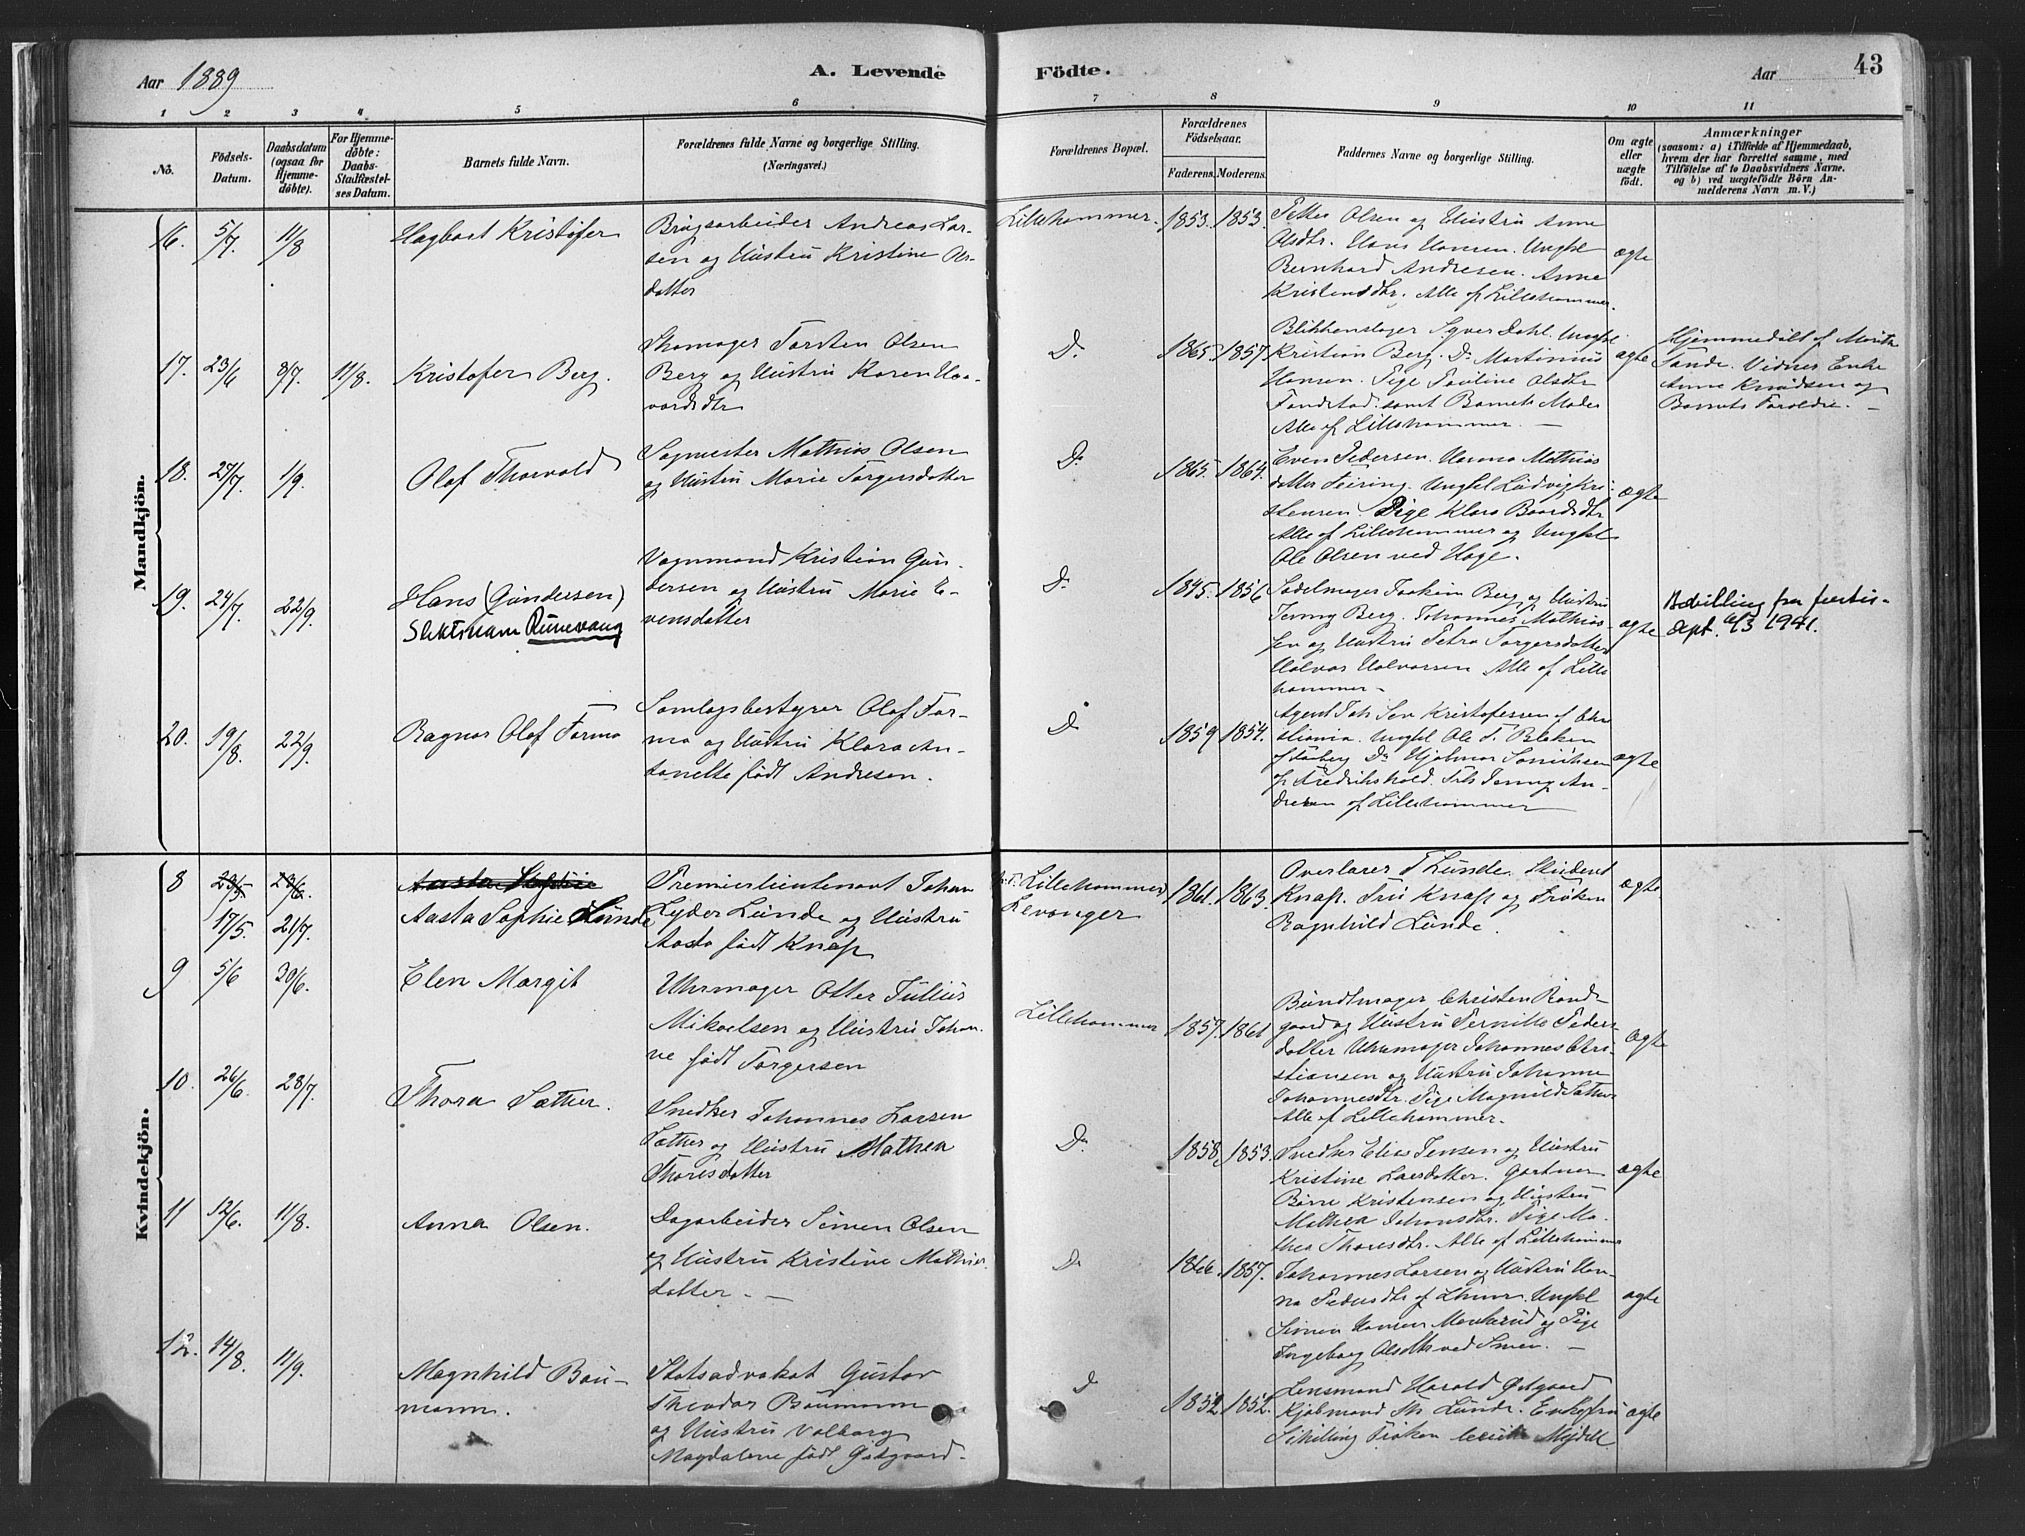 Aar 1889
A. Levende
Födte.
Aar
43
1 2 3 4 5 6 7 8 9 10 11
No.
Födsels-
Datum.
Daabsdatum
(ogsaa for
Hjemme-
döbte).
For Hjemme-
döbte:
Daabs-
Stadfæstel-
ses Datum.
Barnets fulde Navn.
Forældrenes fulde Navne og borgerlige Stilling.
(Næringsvei.)
Forældrenes Bopæl.
Forældrenes
Födselsaar.
Faderens. Moderens.
Faddernes Navne og borgerlige Stilling.
Om ægte
eller
uægte
födt.
Anmærkninger
(saasom: a) i Tilfælde af Hjemmedaab,
hvem der har forrettet samme, med
Tilföielse af to Daabsvidners Navne.
og b) ved uægtefödte Börn An-
melderens Navn m. V.)
Mandkjön.
16. 5/7 11/8
Hagbart Kristofer
Brugsarbeider Andreas Lar-
sen og Hustru Kristine Ols-
datter
Lillehammer. 1853. 1853.
Petter Olsen og Hustru Anne
Olsdtr. Hans Hansen. Ungkl
Bernhard Andresen. Anne
Kristensdtr. Alle af Lillehammer.
ægte
17. 23/6 8/7 11/8.
Kristofer Berg.
Skomager Torsten Olsen
Berg og Hustru Karen Haa-
vardsdtr
Do 1865. 1857.
Blikkenslager Syver Dahl. Ungkl.
Kristian Berg. Do Martinius
Hansen. Pige Pauline Olsdtr
samt Barnets Moder
Alle af Lillehammer. —
ægte
Hjemmedøbt af Marit
Sande. Vidner Enke
Anne Knudsen og
Barnets Forældre. —
18. 27/7 1/9.
Olaf Thorvald
Sagmester Mathias Olsen
og Hustru Marie Torgersdatter
Do 1865. 1864.
Even Pedersen. Hanna Mathias
datter Seiring. Ungkl Ludvig Kri-
stensen. Pige Klara Baardsdtr
Alle af Lillehammer og Ungkl
Ole Olsen ved Hage.
ægte
19. 24/7 22/9.
Hans (Gundersen)
Slektsnavn Runevang
Vognmand Kristian Gun-
dersen og Hustru Marie E-
vensdatter
Do 1845. 1856
Sadelmager Joakim Berg og Hustru
Jenny Berg. Johannes Mathias-
sen og Hustru Petra Torgersdatter
Halvor Halvorsen Alle af Lille
hammer —
ægte
Bevilling fra justis-
dept. 1941.
20. 19/8. 22/9.
Ragnar Olaf Formo
Samlagsbestyrer Olaf For-
mo og Hustru Klara An-
tonette født Andresen.
Do 1859 1854.
Agent Joh. Sev Kristofersen af Chri
stiania. Ungkl Ole T. Bleken
af Faaberg Do Hjalmar
af Fredrikshald. Frk Jenny An-
dresen af Lillehammer
ægte
Kvindekjön.
8 17/5. 21/7.
Aasta Sophie Lunde
Premierlieutenant Johan
Lyder Lunde og Hustru
Aasta født Knap
Lillehammer
Levanger
1861. 1863.
Overlærer Lunde. Student
Knap. Fru Knap og Frøken
Ragnhild Lunde.
ægte
9 5/6 30/6.
Elen Margit
Uhrmager Otter Julius
Mikaelsen og Hustru Johan-
ne født Torgersen
Lillehammer 1857. 1861
Bundtmager Christen Rønd-
gaard og Hustru Pernille Peders
datter Uhrmager Johannes Chri-
stiansen og Hustru Johanne
Johannesdtr. Pige Magnild Sæther
Alle af Lillehammer.
ægte
10. 26/6. 28/7.
Thora Sæther.
Snedker Johannes Larsen
Sæther og Hustru Mathea
Thoresdatter
Do 1858. 1853.
Snedker Elias Jensen og Hustru
Kristine Larsdatter. Gartner
Kristensen og Hustru
Mathea Johansdtr. Pige Ma-
thea Thoresdtr. Alle af Lillehammer
ægte
11 12/6. 11/8.
Anna Olsen.
Dagarbeider Simen Olsen
og Hustru Kristine Mathias-
datter. —
Do 1866. 1857.
Johannes Larsen og Hustru Han-
na Pedersdtr Ungkl
Simen Hansen og Pige
Ingeborg Olsdtr —
ægte
12. 14/8. 11/9.
Magnhild Bau-
mann.
Statsadvokat Gustav
Theodor Baumann
og Hustru Valborg
Magdalene født Østgaard.
Do 1852 1852.
Lensmand Harald Østgaard
Kjøbmand Th. Lunde. Enkefru
Schilling Frøken Mejdell
ægte